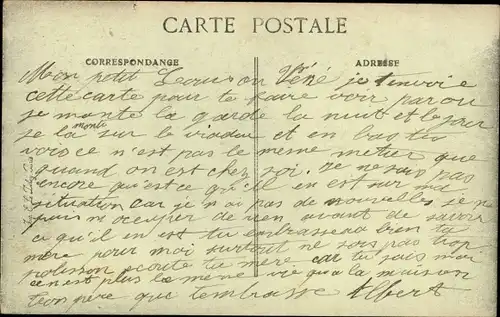 CARTE POSTALE
CORRESPONDANCE
ADRESSE
Mon petit Louison Réné je tenvoie
cette carte pour te faire voir par ou
je monte la garde la nuit et le jour
je la monte sur le viaduc et en bas tu
vois ce n'est pas le meme metier que
quand on est chez soi. Je ne sais pas
encore qu'est ce qu'il en est sur moi
situation car je n'ai pas de nouvelles je ne
puis m'occuper de rien avant de savoir
ce qu'il en est tu embrasseras bien ta
mere pour moi surtout ne sois pas trop
polisson ecoute ta mere car tu sais moi
ce n'est plus la même vie qu'a la maison
ton père que tembrasse Albert